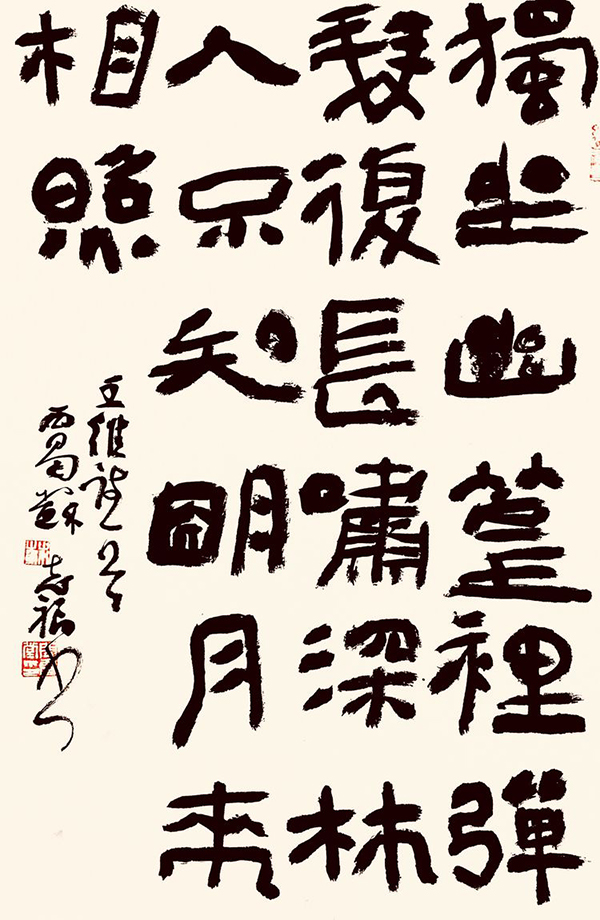 獨坐幽篁裡彈
琴復長嘯深林
人不知明月來
相照
王維詩
西蜀